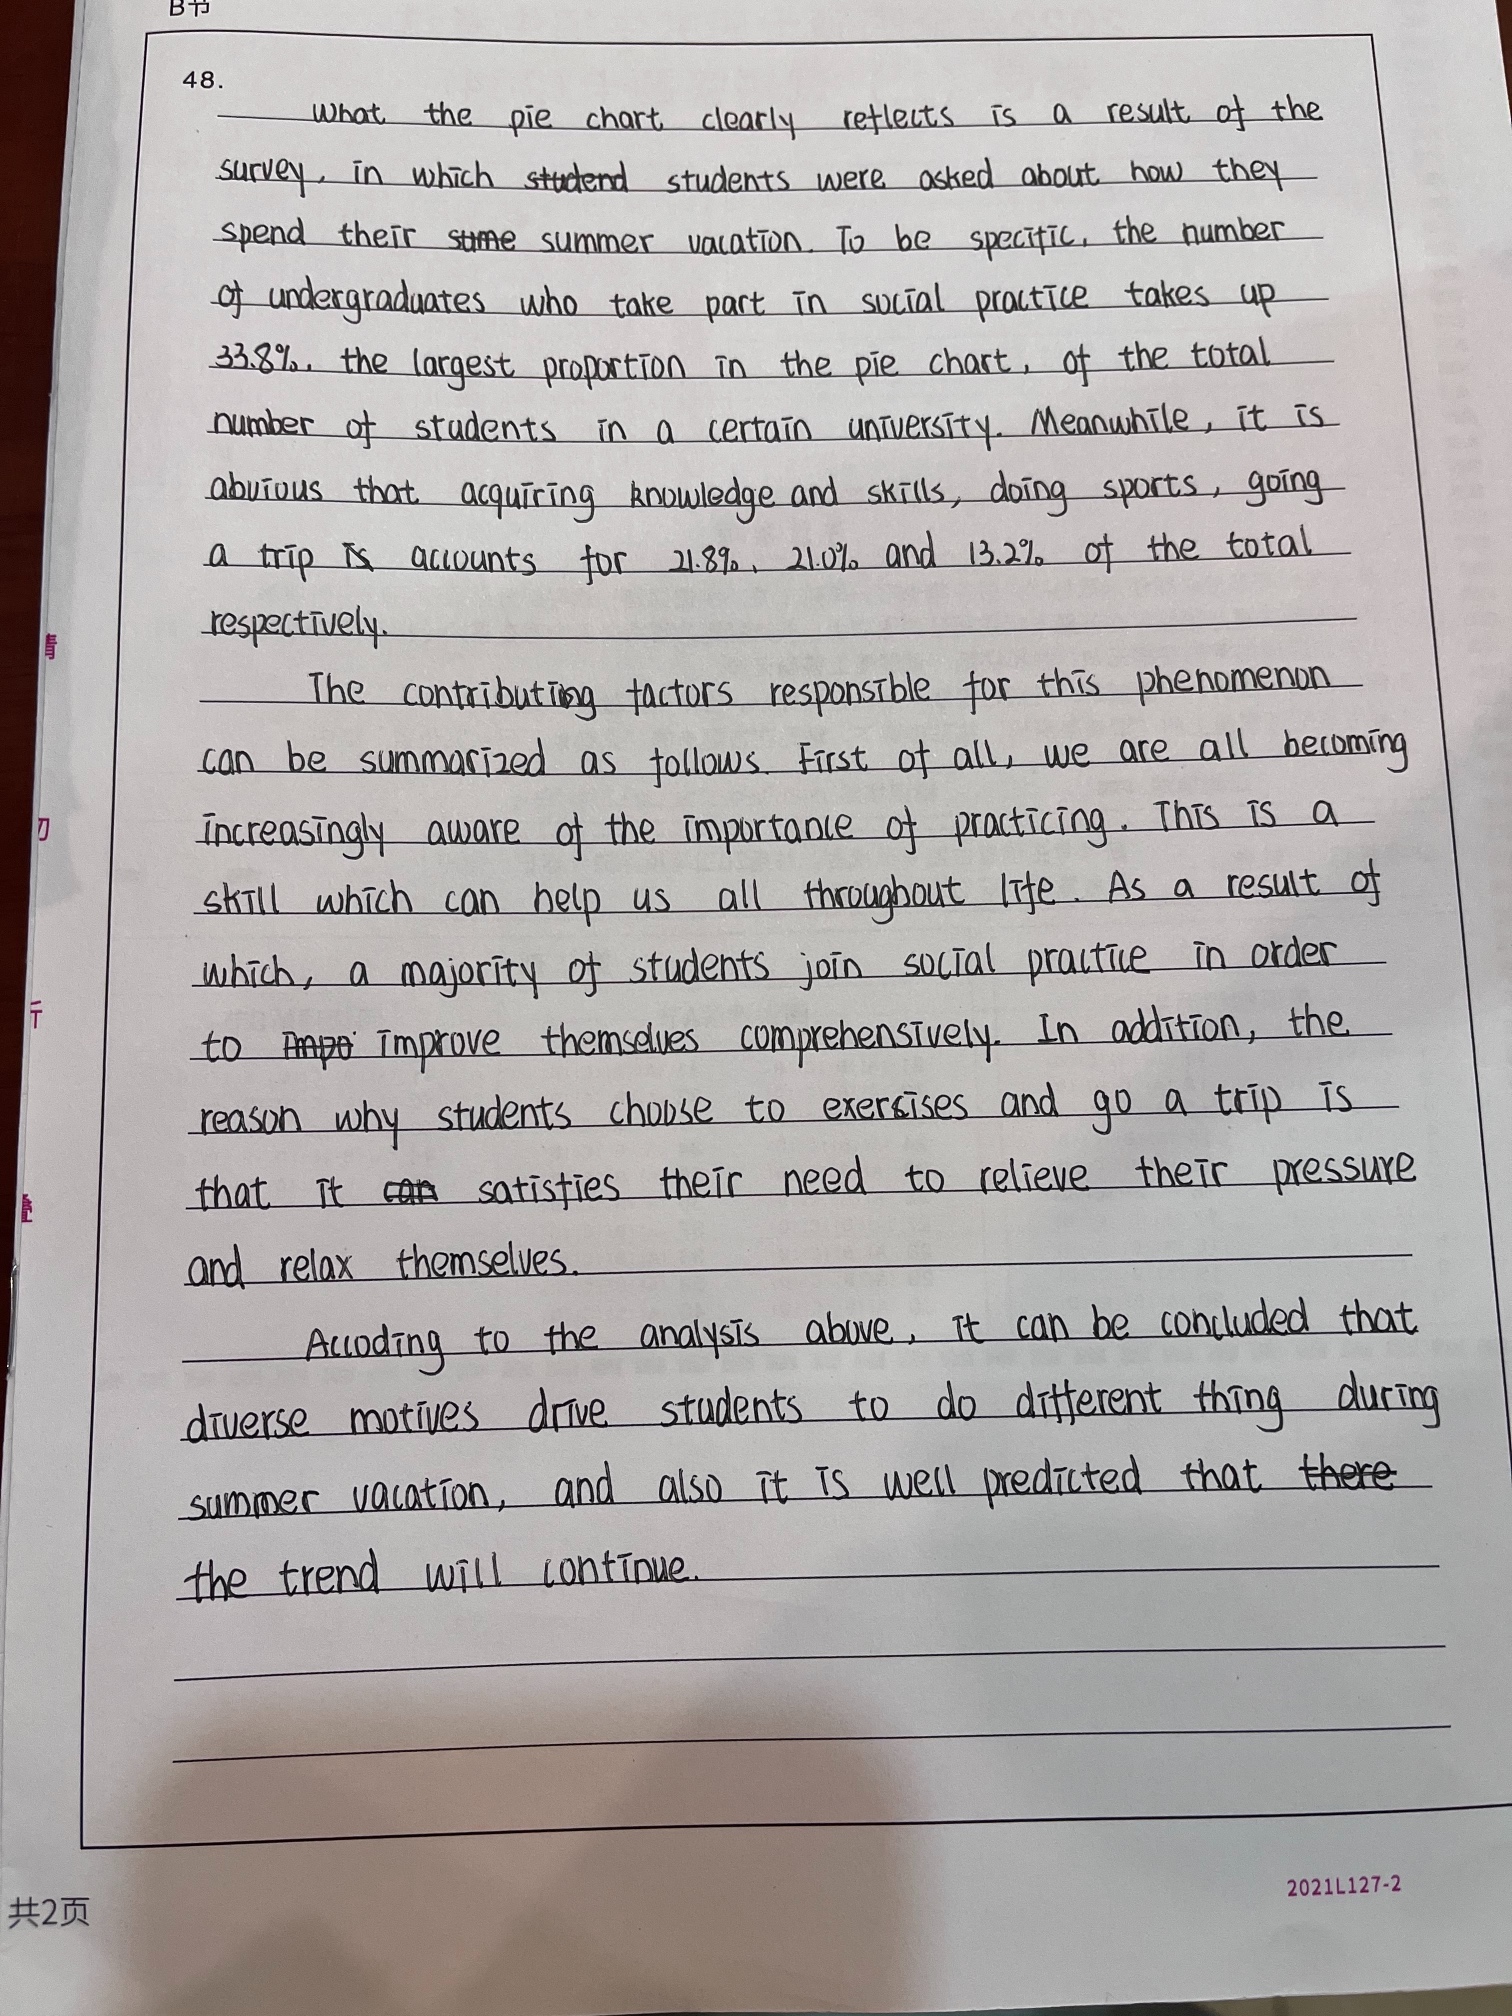 B节
48.
What the pie chart clearly reflects is a result of the
survey, in which studend students were asked about how they
spend their sume summer vacation. To be specific, the number
of undergraduates who take part in social practice takes up
33.8%, the largest proportion in the pie chart, of the total
number of students in a certain university. Meanwhile, it is
abvious that acquiring knowledge and skills, doing sports, going
a trip is accounts for 21.8%, 21.0% and 13.2% of the total
respectively.
The contributing factors responsible for this phenomenon
can be summarized as follows. First of all, we are all becoming
increasingly aware of the importance of practicing. This is a
skill which can help us all throughout life. As a result of
which, a majority of students join social practice in order
to impo improve themselves comprehensively. In addition, the
reason why students choose to exercises and go a trip is
that it can satisfies their need to relieve their pressure
and relax themselves.
Accoding to the analysis above, it can be concluded that
diverse motives drive students to do different thing during
summer vacation, and also it is well predicted that there
the trend will continue.
共2页
2021L127-2